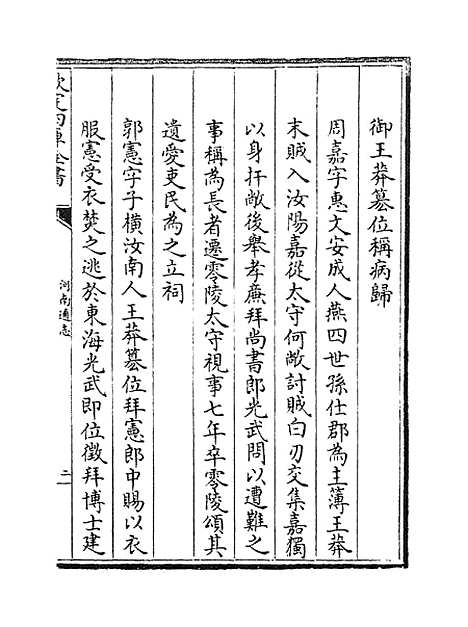 御王莽簒位稱病歸
周嘉字惠文安成人燕四世孫仕郡為主簿王莽
末賊入汝陽嘉從太守何敞討賊白刃交集嘉獨
以身扞敞後舉孝廉拜尚書郎光武問以遭難之
事稱為長者遷零陵太守視事七年卒零陵頌其
遺愛吏民為之立祠
郭憲字子橫汝南人王莽簒位拜憲郎中賜以衣
服憲受衣焚之逃於東海光武即位徵拜博士建
欽定四庫全書
河南通志
二